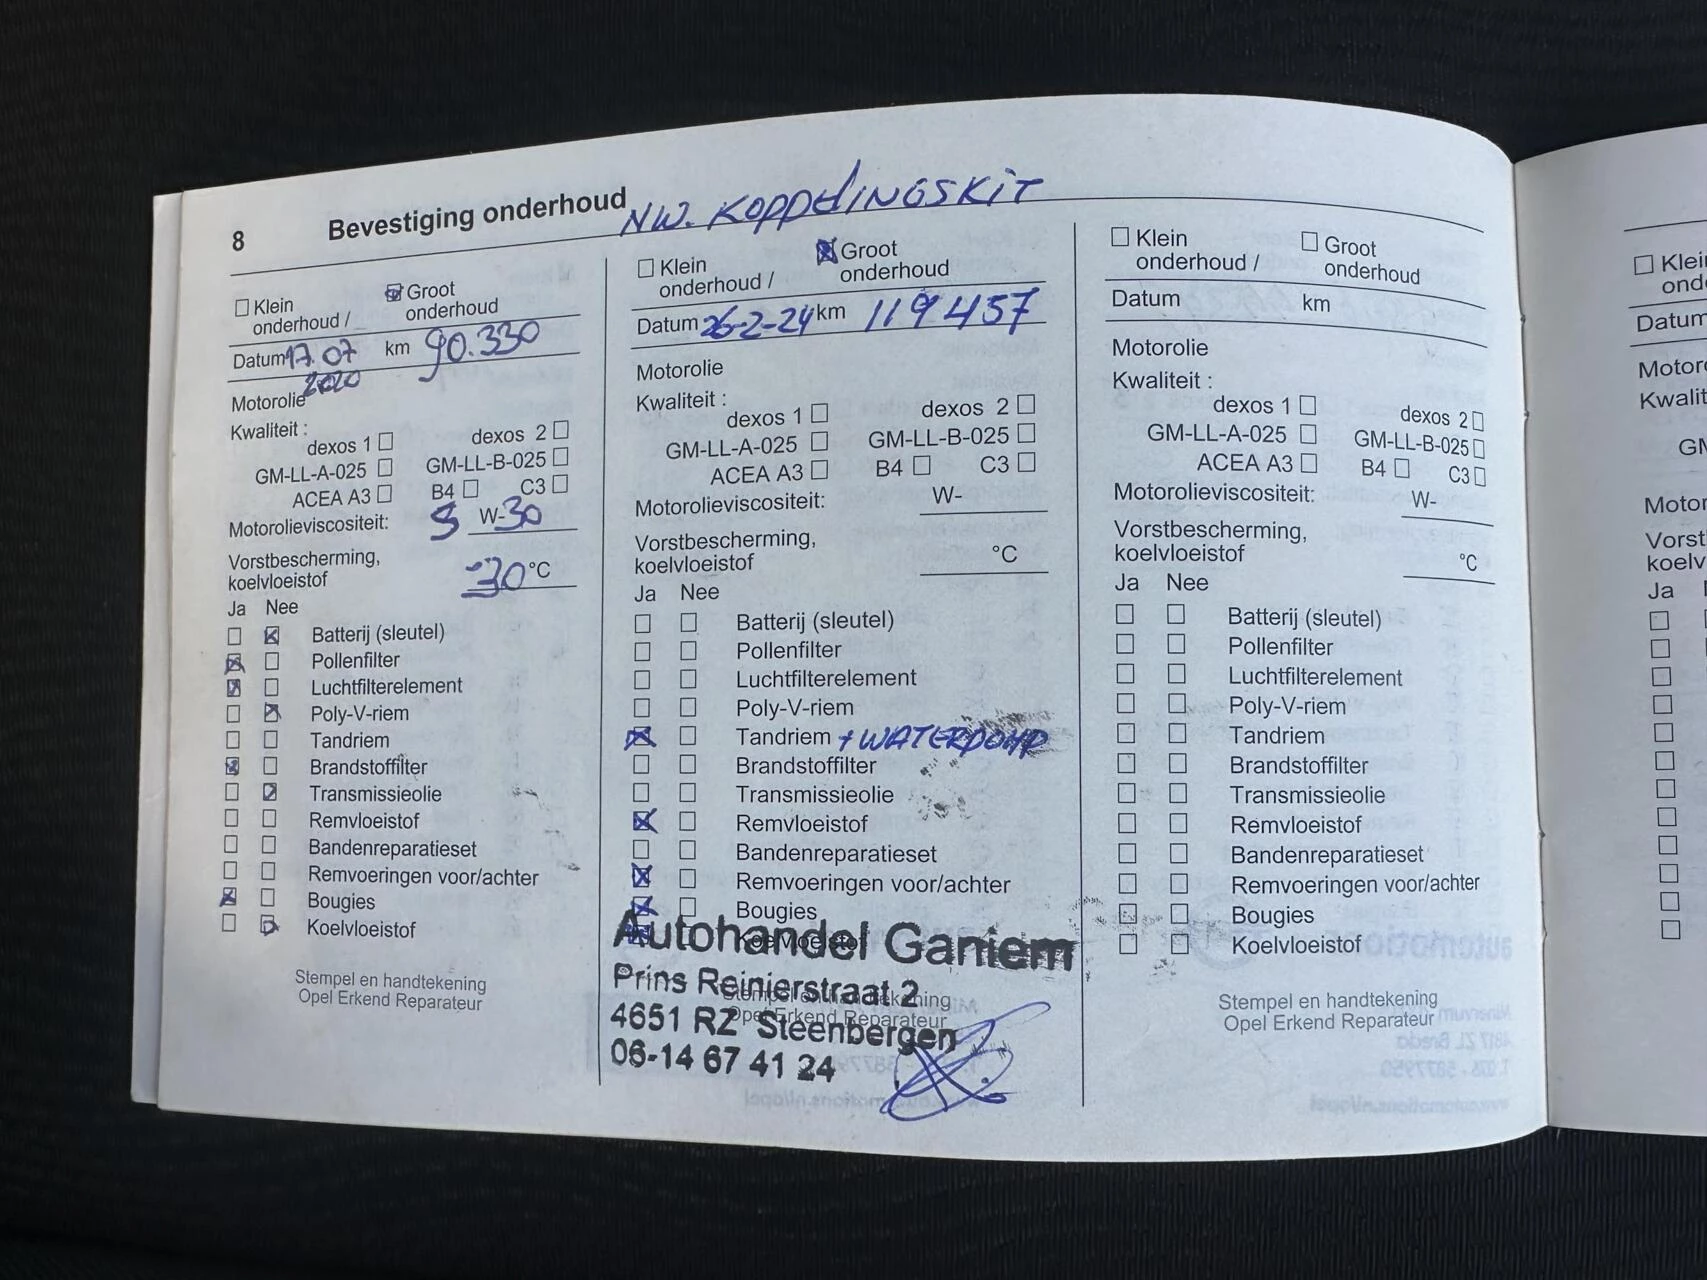 8 Bevestiging onderhoud NW. KOPPELINGSKIT
Klein onderhoud /
Groot onderhoud
Datum 17.07 2020 km 90.330
Motorolie
Kwaliteit :
dexos 1 dexos 2
GM-LL-A-025 GM-LL-B-025
ACEA A3 B4 C3
Motorolieviscositeit: 5 W-30
Vorstbescherming,
koelvloeistof -30 °C
Ja Nee
Batterij (sleutel)
Pollenfilter
Luchtfilterelement
Poly-V-riem
Tandriem
Brandstoffilter
Transmissieolie
Remvloeistof
Bandenreparatieset
Remvoeringen voor/achter
Bougies
Koelvloeistof
Stempel en handtekening
Opel Erkend Reparateur
Klein onderhoud /
Groot onderhoud
Datum 26-2-24 km 119457
Motorolie
Kwaliteit :
dexos 1 dexos 2
GM-LL-A-025 GM-LL-B-025
ACEA A3 B4 C3
Motorolieviscositeit: W-
Vorstbescherming,
koelvloeistof °C
Ja Nee
Batterij (sleutel)
Pollenfilter
Luchtfilterelement
Poly-V-riem
Tandriem + WATERPOMP
Brandstoffilter
Transmissieolie
Remvloeistof
Bandenreparatieset
Remvoeringen voor/achter
Bougies
Koelvloeistof
Autohandel Ganiem
Prins Reinierstraat 2
4651 RZ Steenbergen
06-14 67 41 24
Stempel en handtekening
Opel Erkend Reparateur
Klein onderhoud /
Groot onderhoud
Datum km
Motorolie
Kwaliteit :
dexos 1 dexos 2
GM-LL-A-025 GM-LL-B-025
ACEA A3 B4 C3
Motorolieviscositeit: W-
Vorstbescherming,
koelvloeistof °C
Ja Nee
Batterij (sleutel)
Pollenfilter
Luchtfilterelement
Poly-V-riem
Tandriem
Brandstoffilter
Transmissieolie
Remvloeistof
Bandenreparatieset
Remvoeringen voor/achter
Bougies
Koelvloeistof
Stempel en handtekening
Opel Erkend Reparateur
Datum
Ja